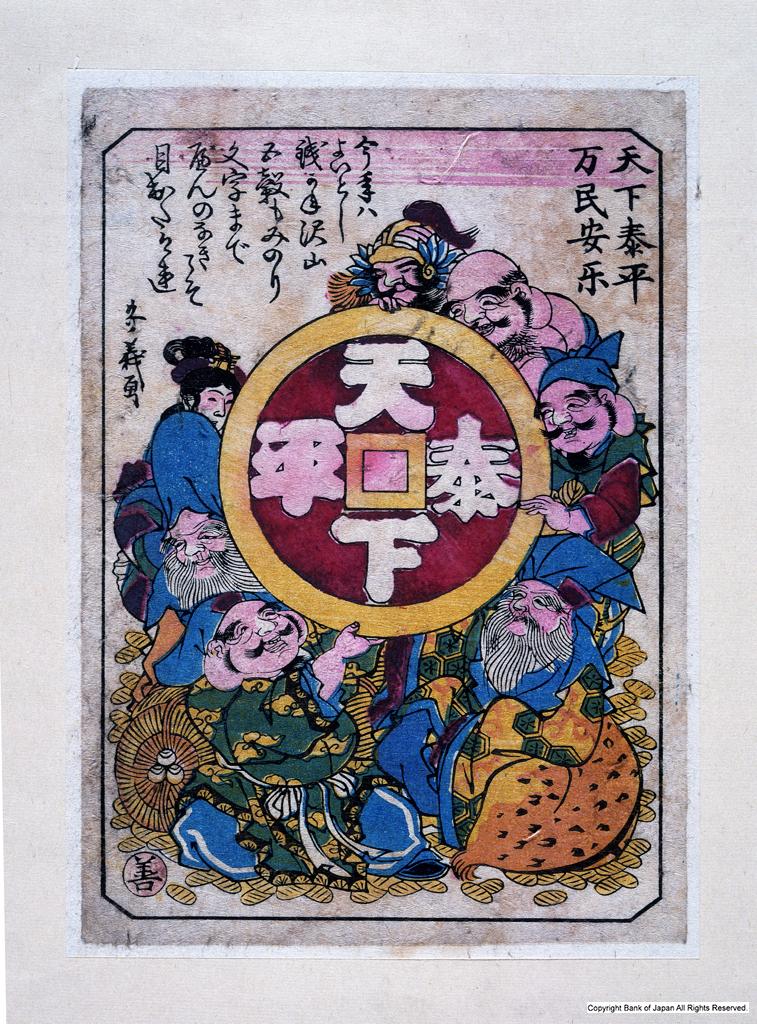 天下泰平
万民安乐
今年ハ
よいとし
銭かね沢山
五穀もみのり
文字まで
へんのなきこそ
目出たけ連
天下泰平
善
Copyright Bank of Japan All Rights Reserved.